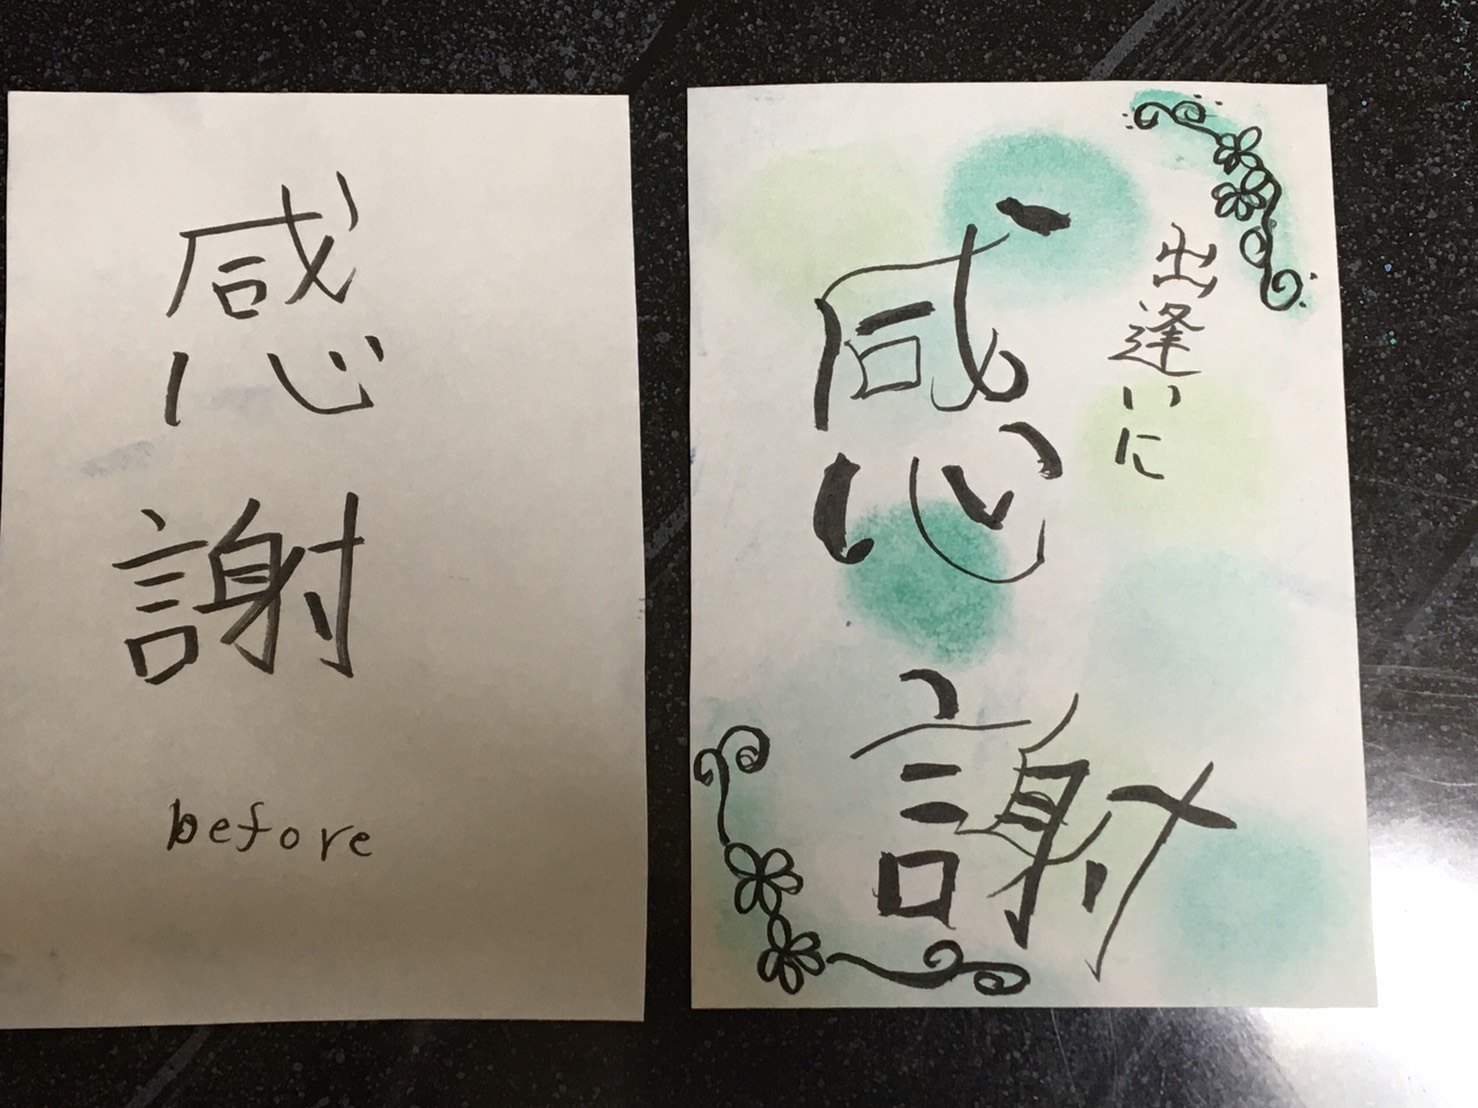 感謝
before
出逢いに
感謝